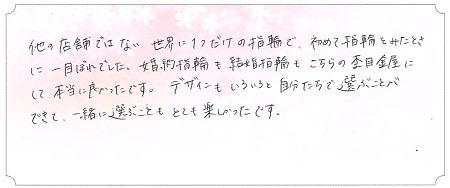 他の店舗ではない世界に1つだけの指輪で、初めて指輪をみたとき
に一目ぼれでした。婚約指輪も結婚指輪もこちらの杢目金屋に
して本当に良かったです。デザインもいろいろと自分たちで選ぶことが
できて、一緒に選ぶこともとても楽しかったです。